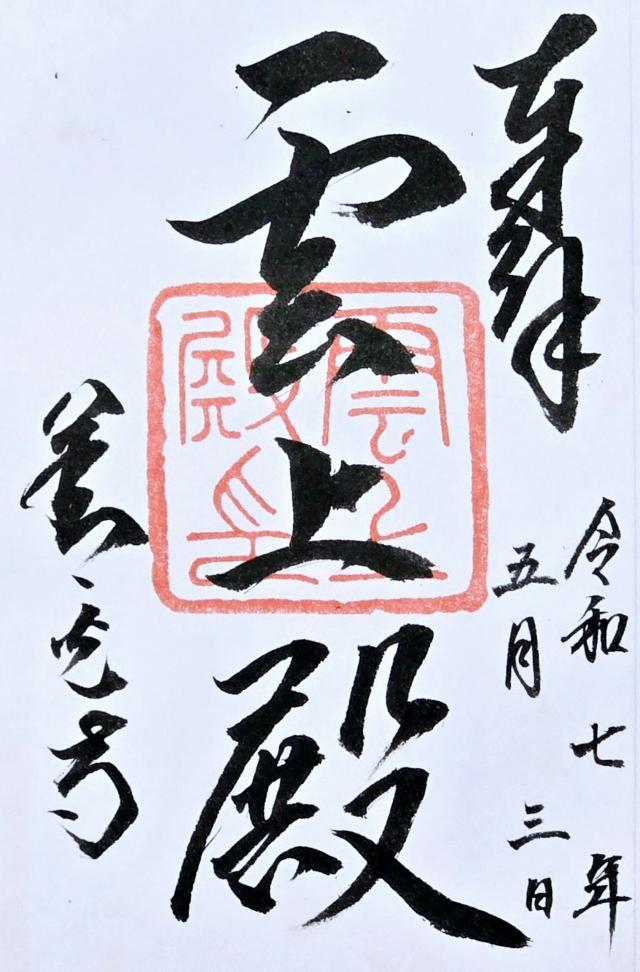 奉拝
令和七年
五月三日
雲上殿
善光寺